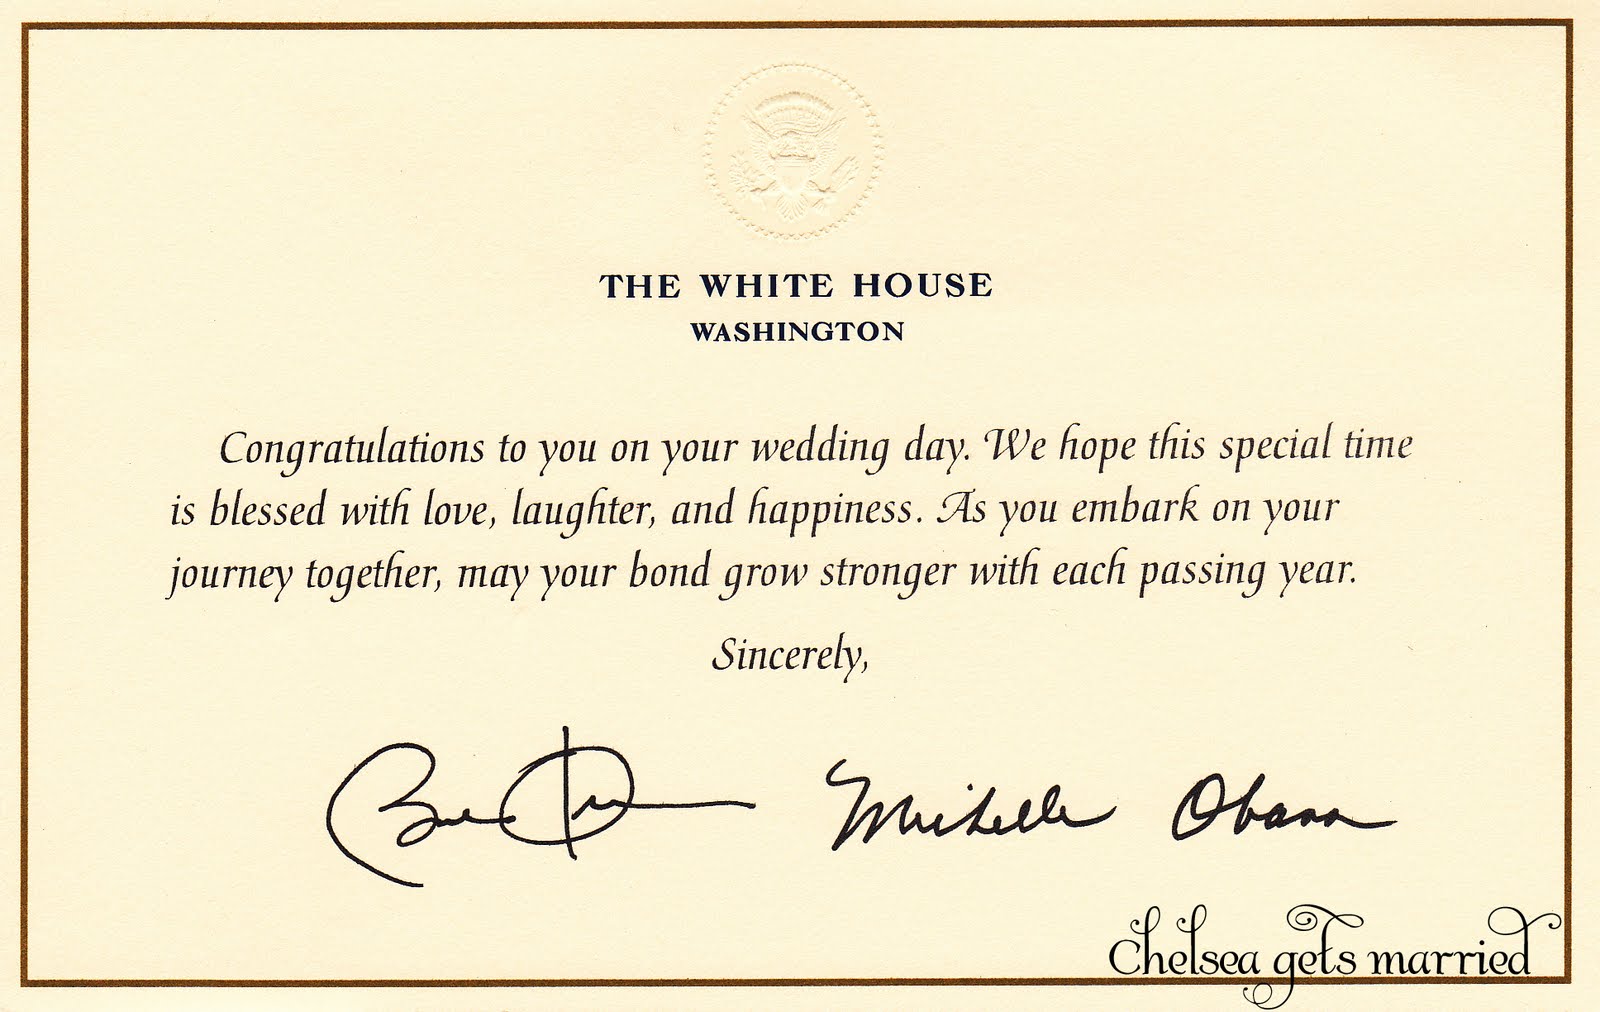 THE WHITE HOUSE
WASHINGTON
Congratulations to you on your wedding day. We hope this special time
is blessed with love, laughter, and happiness. As you embark on your
journey together, may your bond grow stronger with each passing year.
Sincerely,
Michelle Obama
Chelsea gets married